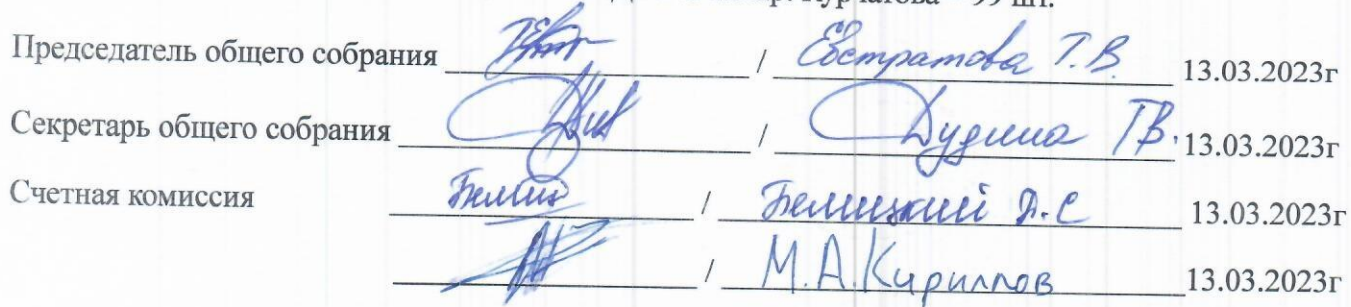 Курчатова – 99 шт.
Председатель общего собрания / Евстратова Т.В. 13.03.2023г
Секретарь общего собрания / Дудина Т.В. 13.03.2023г
Счетная комиссия / Белицкий Д.С 13.03.2023г
/ М.А.Кириллов 13.03.2023г